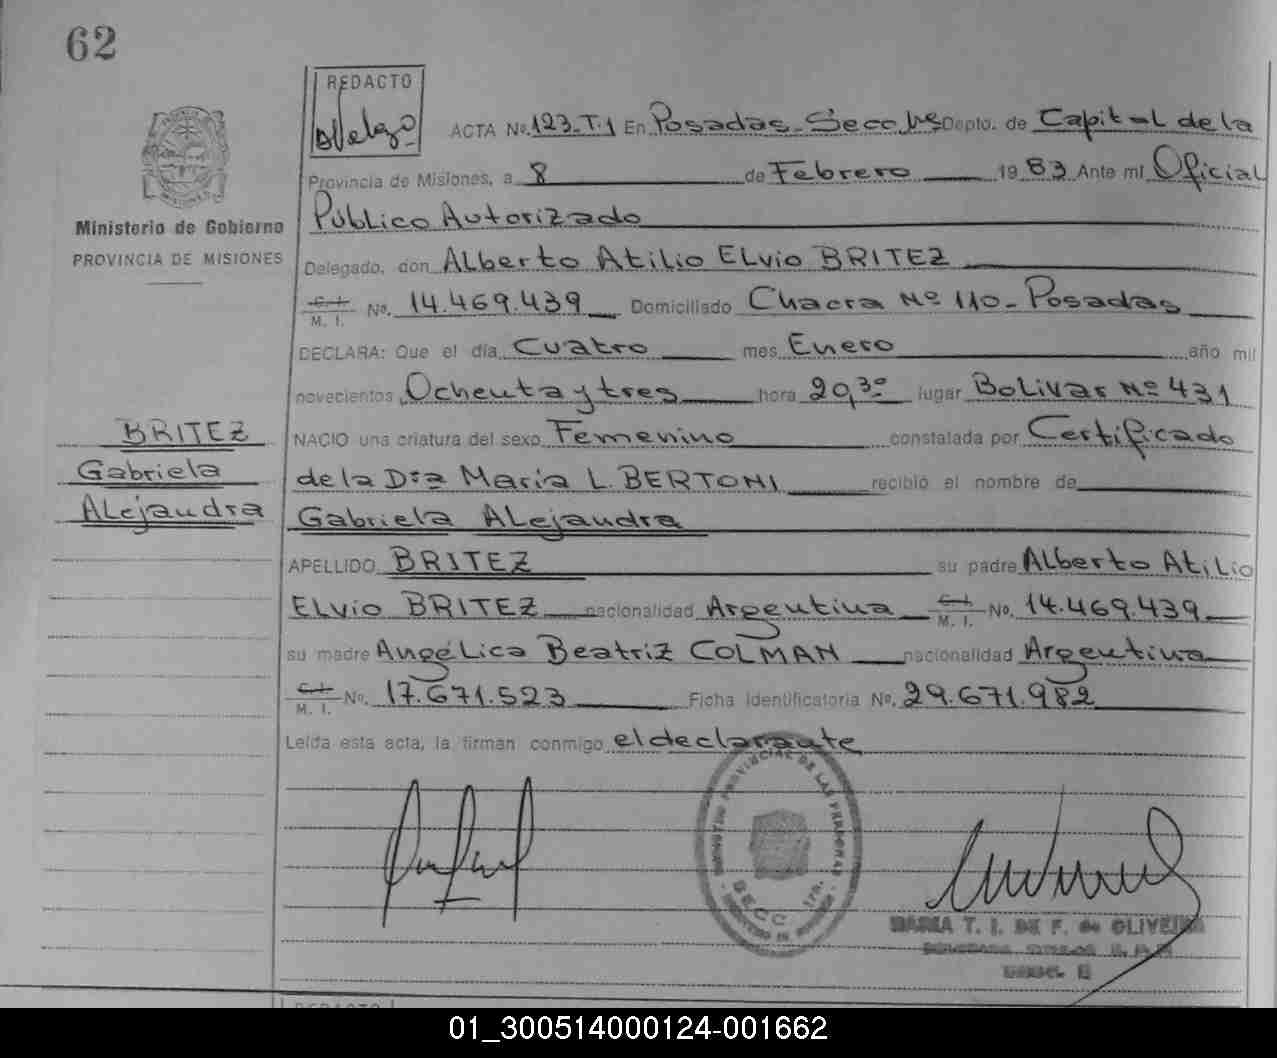 62
REDACTO
ACTA No. 123-T.1 En Posadas - Secc 1ra Depto. de Capital de la
Provincia de Misiones, a 8 de Febrero 1983 Ante mi Oficial
Público Autorizado
Ministerio de Gobierno
PROVINCIA DE MISIONES
Delegado, don Alberto Atilio Elvio BRITEZ
C.I.
M. I. No. 14.469.439 Domiciliado Chacra Nº 110 - Posadas
DECLARA: Que el día Cuatro mes Enero año mil
novecientos Ochenta y tres hora lugar Bolivar Nº 431
BRITEZ
Gabriela
Alejandra
NACIO una criatura del sexo Femenino constatada por Certificado
de la Dra Maria L. BERTONI recibió el nombre de
Gabriela Alejandra
APELLIDO BRITEZ su padre Alberto Atilio
Elvio BRITEZ nacionalidad Argentina C.I.
M. I. No. 14.469.439
su madre Angélica Beatriz COLMAN nacionalidad Argentina
C.I.
M. I. No. 17.671.523 Ficha identificatoria No. 29.671.982
Leída esta acta, la firman conmigo el declarante
PROVINCIAL DE LAS PERSONAS
SECC. 1ra.
MARIA T. I. DE F. de OLIVEIRA
REDACTO
01_300514000124-001662